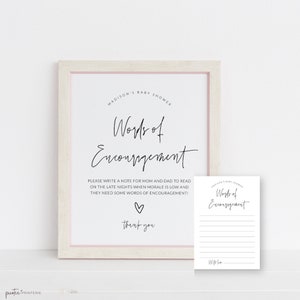 MADISON'S BABY SHOWER
Words of
Encouragement
PLEASE WRITE A NOTE FOR MOM AND DAD TO READ
ON THE LATE NIGHTS WHEN MORALE IS LOW AND
THEY NEED SOME WORDS OF ENCOURAGEMENT!
thank you
Words of
Encouragement